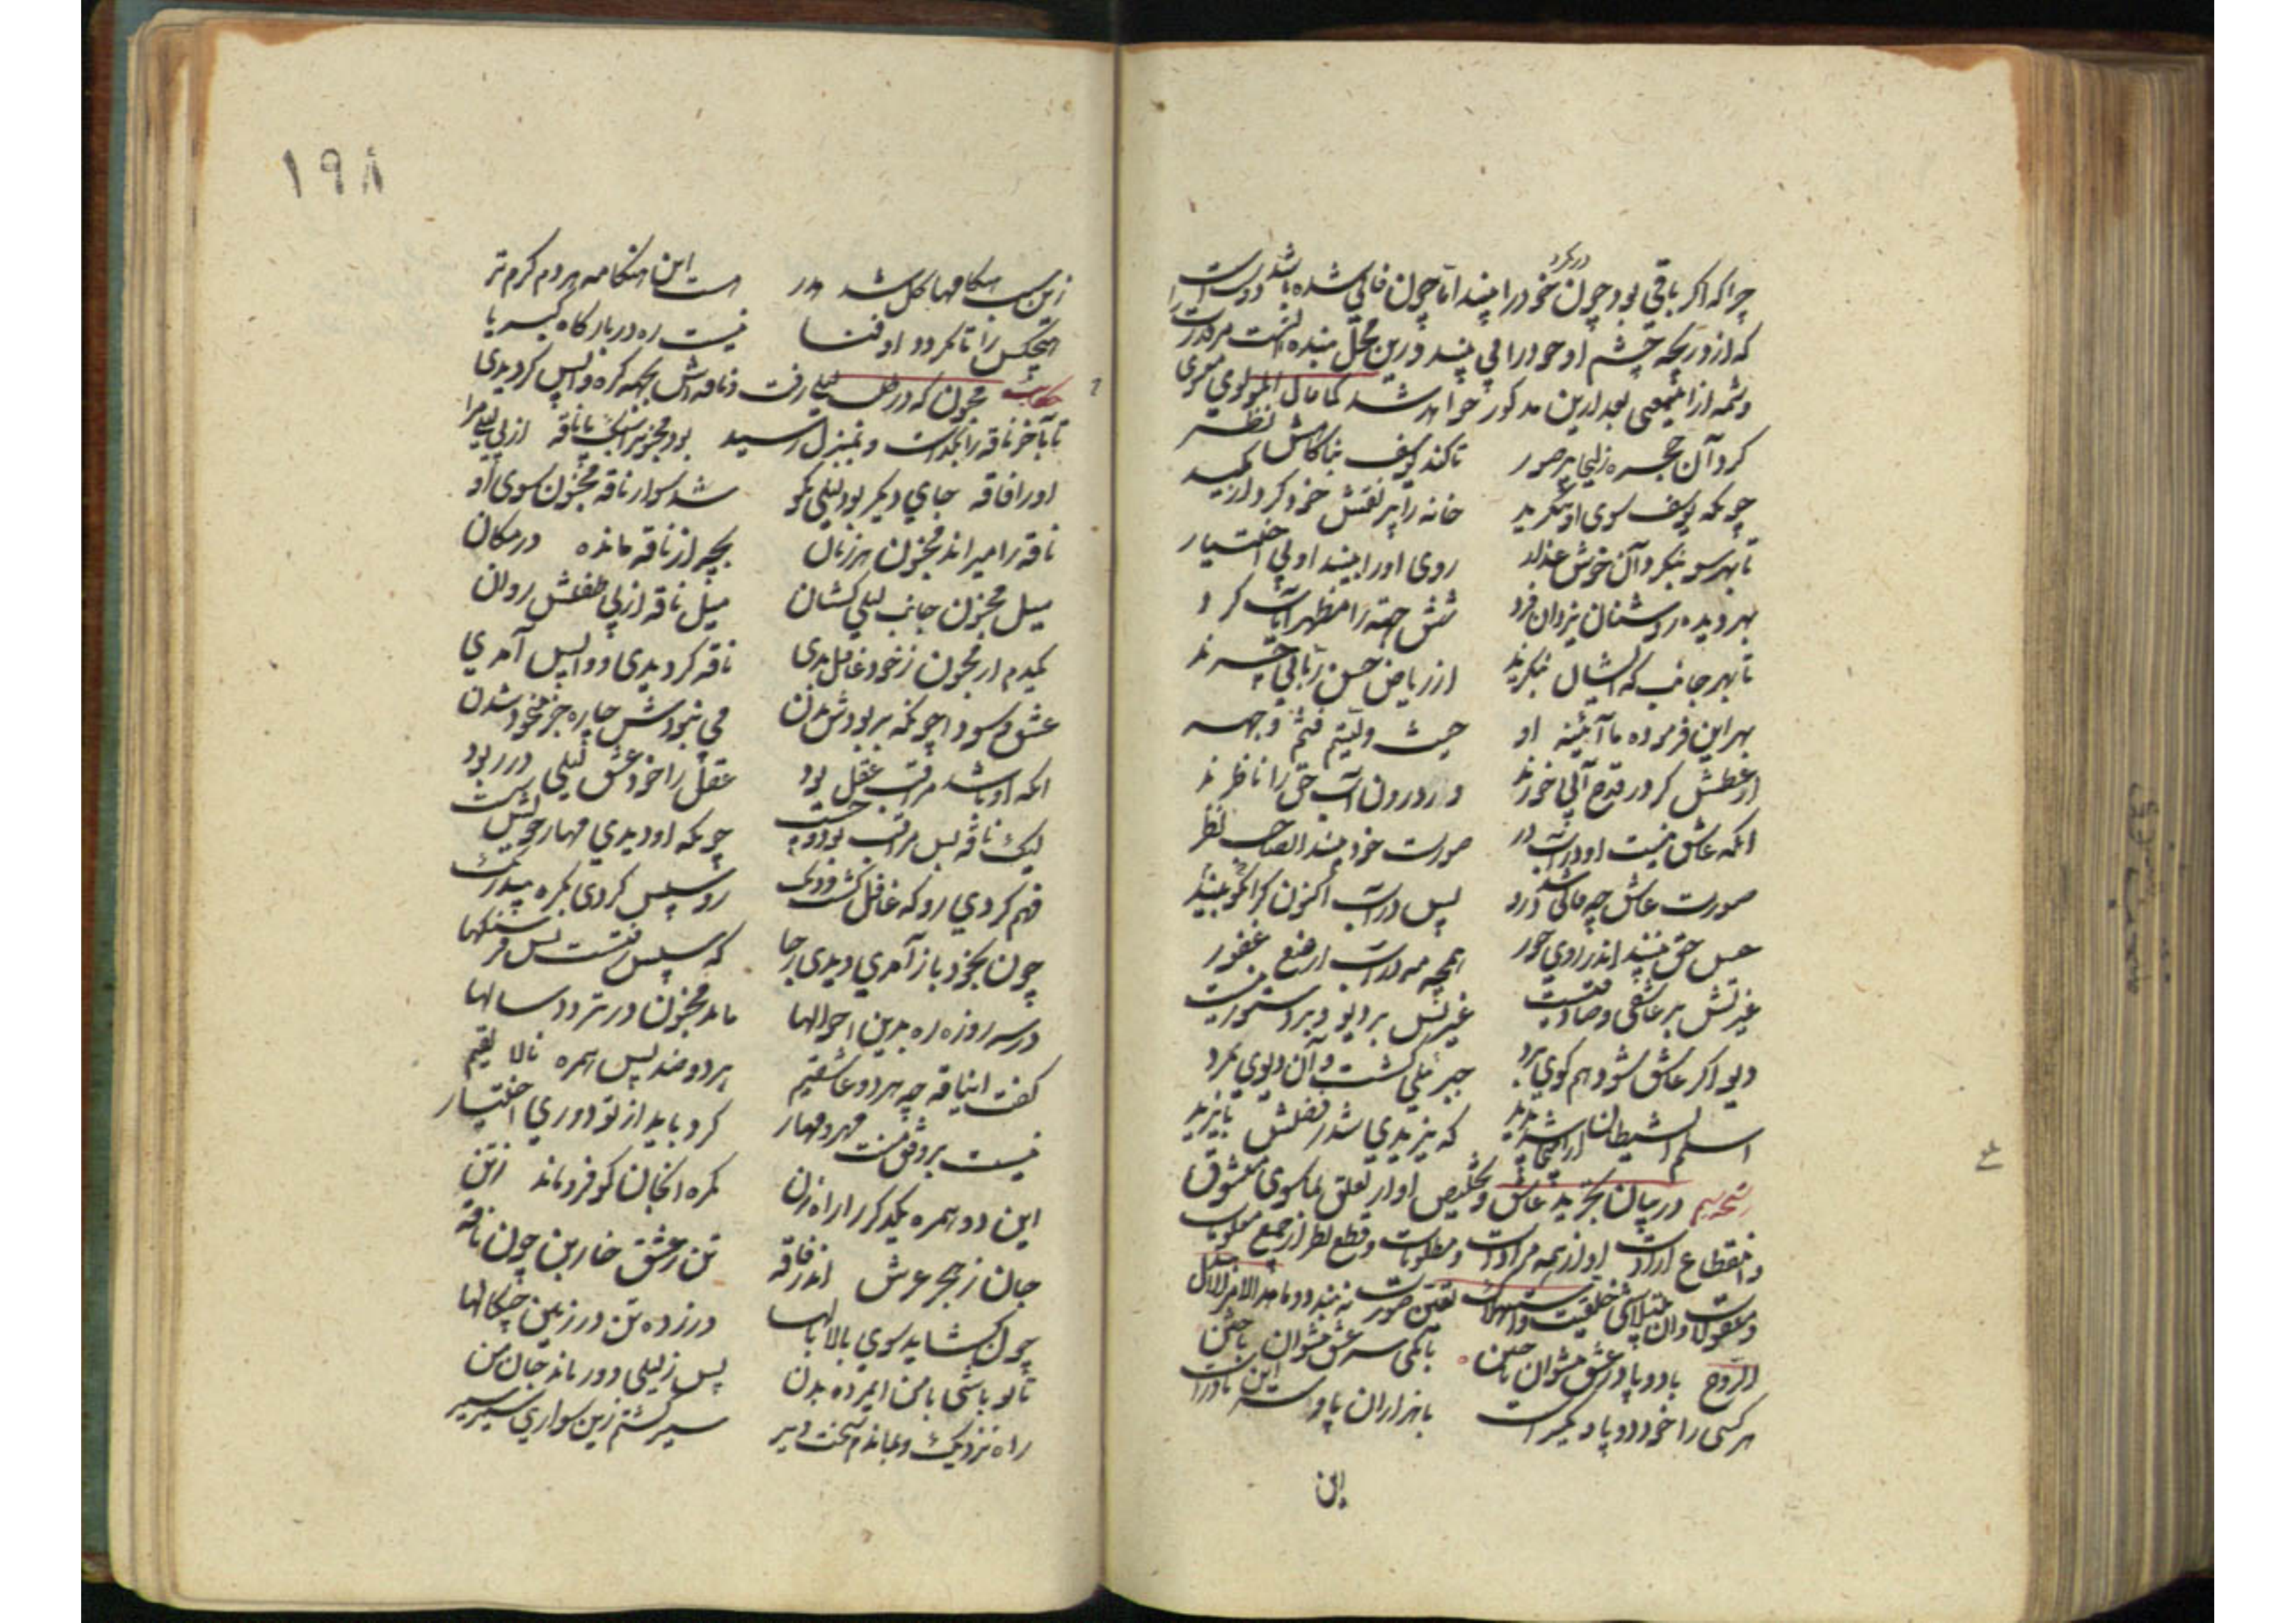 در نکرد
چراکه اکر باقی بود چون خود را بیند اما چون فانی شده باشد دوست را
که از دریچه چشم او خود را می بیند درین محل بنده نیست مر دوست را
وشمه از اینمعنی بعد ازین مذکور خواهد شد کما قال المولوی معنوی
کرد آن حجره زلیخا پر صور تا کند یوسف بناکامش نظر
چونکه یوسف سوی او می ننکرید خانه را پر نقش خود کرد از مکید
تا بهر سو بنکرد آن خوش عذار روی او را بیند او بی اختیار
بهر دیده روشنان یزدان فرد شش جهة را مظهر آیات کرد
تا بهر جانب که ایشان بنکرند از ریاض حسن ربانی چرند
بهر این فرموده با آئینه او حیث ولیتم فثم وجهه
از عطش کر در قدح آبی خورند در درون آب حق را ناظرند
انکه عاشق نیست او در آب در صورت خود بیند ای صاحب نظر
صورت عاشق چه فانی شد درو پس در آب اکنون کرا بیند بکو
حسن حق بینند اندر روی حور همچو مه در آب از صنع غفور
غیرتش بر عاشقی و صادقیست غیرتش بر دیو و بر استور نیست
دیو اکر عاشق شود هم کوی برد جبرئیلی کشت و آن دیوی بمرد
اسلم الشیطان ازاینجا شد پدید که یزیدی شد ز فضلش بایزید
در بیان تجرید عاشق و تخلیص او از تعلق بماسوی معشوق
وانقطاع ارادت او از همه مرادات و مطلوبات و قطع نظر از جمیع
الروح با دو پا در عشق نتوان تاختن با یکی سر عشق نتوان باختن
هر کسی را خود دو پا و یک سر است با هزاران پا و سر این نادر است
این
۱۹۸
زین سبب هنکامها کل شد هدر هست این هنکامه هر دم کرم تر
هیچکس را تا نکردد او فنا نیست ره در بارکاه کبریا
حکایت مجنون که در طلب لیلی رفت و ناقه اش بجهه کره واپس کردیدی
تا بآخر ناقه را بکذاشت و بمنزل رسید
او را فاقه جای دیکر بود لیلی کو شد سوار ناقه مجنون سوی او
ناقه را میراند مجنون هر زمان بچه از ناقه مانده در مکان
میل مجنون جانب لیلی کشان میل ناقه از پی طفلش روان
یکدم ار مجنون ز خود غافل بدی ناقه کردیدی و واپس آمدی
عشق و سودا چونکه پر بودش بدن می نبودش چاره جز بیخود شدن
انکه او باشد مراقب عقل بود عقل را خود عشق لیلی در ربود
لیک ناقه بس مراقب بود و چست چونکه او دیدی مهار خویش سست
فهم کردی رو که غافل کشت و دنک رو سپس کردی بکره بیدرنک
چون بخود باز آمدی دیدی ز جا که سپس رفتست بس فرسنکها
در سه روزه ره بدین احوالها ماند مجنون در تردد سالها
کفت ای ناقه چه هر دو عاشقیم ما دو ضد پس همره نالایقیم
نیست بر وفق منت مهر و مهار کرد باید از تو دوری اختیار
این دو همره یکدکر را راه زن کمره آنجان کو فرو ماند ز تن
جان ز هجر عرش اندر فاقه تن ز عشق خاربن چون ناقه
جان کشاید سوی بالا بالها در زده تن در زمین چنکالها
تا تو باشی با من ای مرده بدن پس ز لیلی دور ماند جان من
راه نزدیک و بماندم سخت دیر سیر کشتم زین سواری سیر سیر